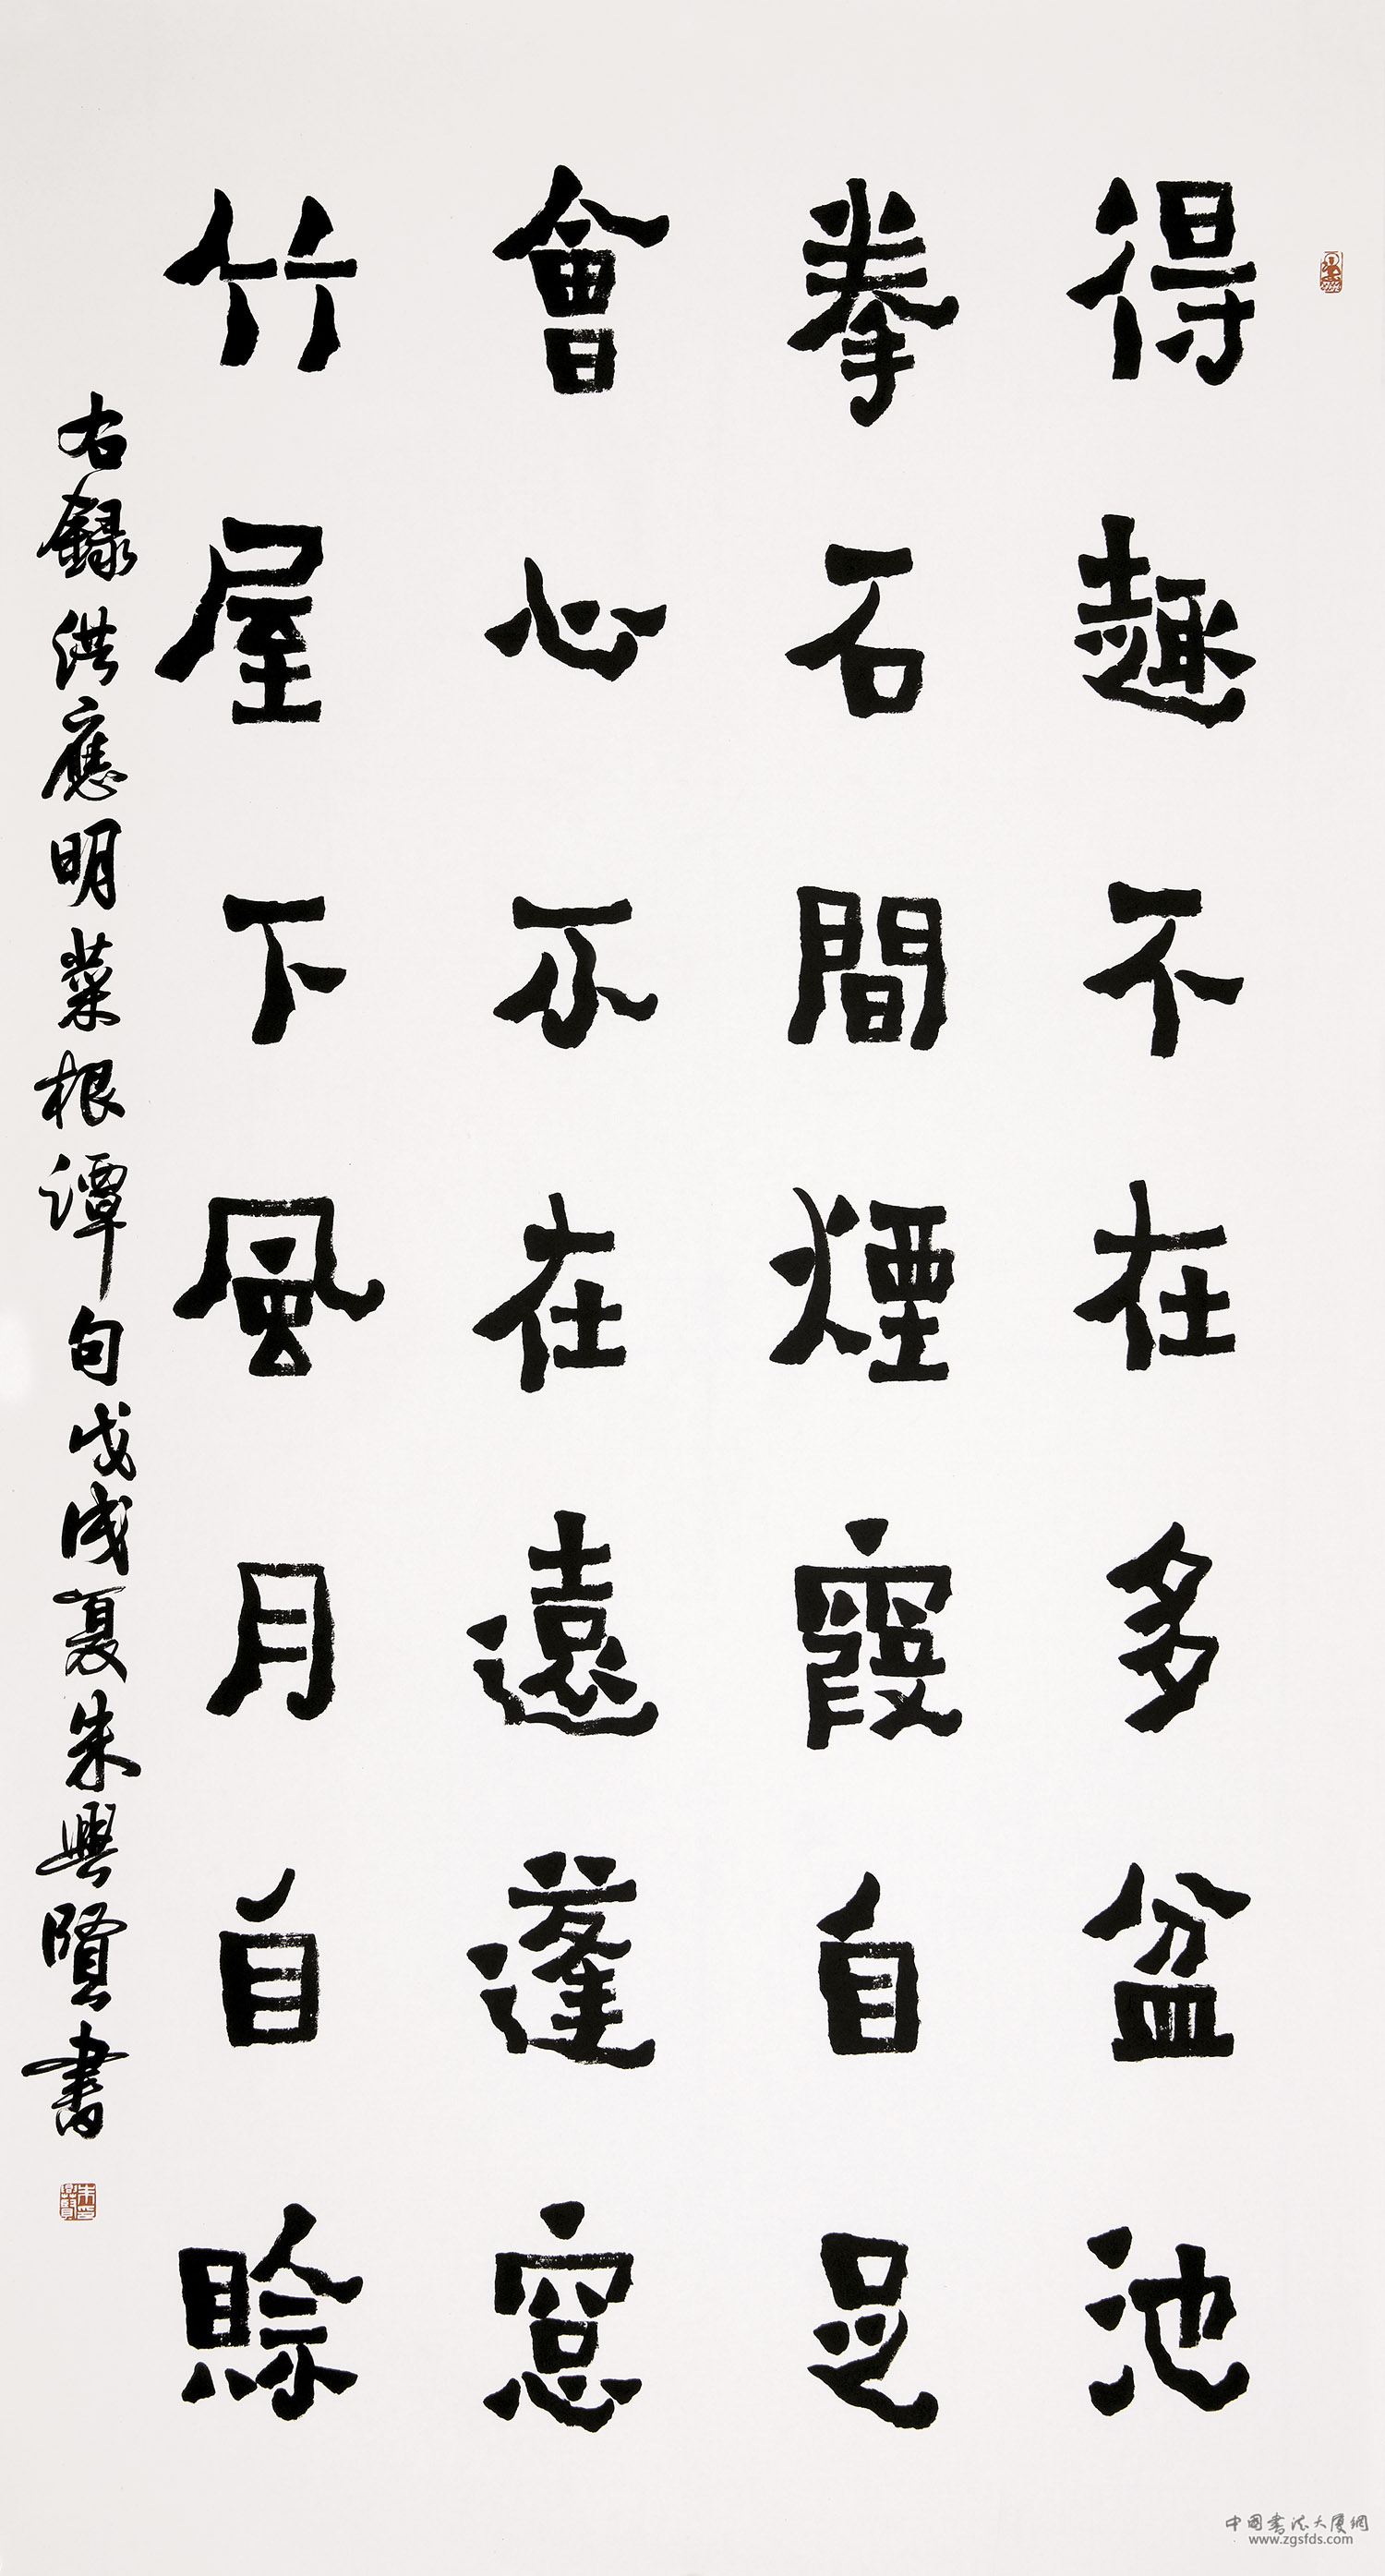 得趣不在多盆池
拳石間煙霞自足
會心不在遠蓬窓
竹屋下風月自賒
右録洪應明菜根譚句戊戌夏朱興賢書
中國書法大厦網
www.zgsfds.com